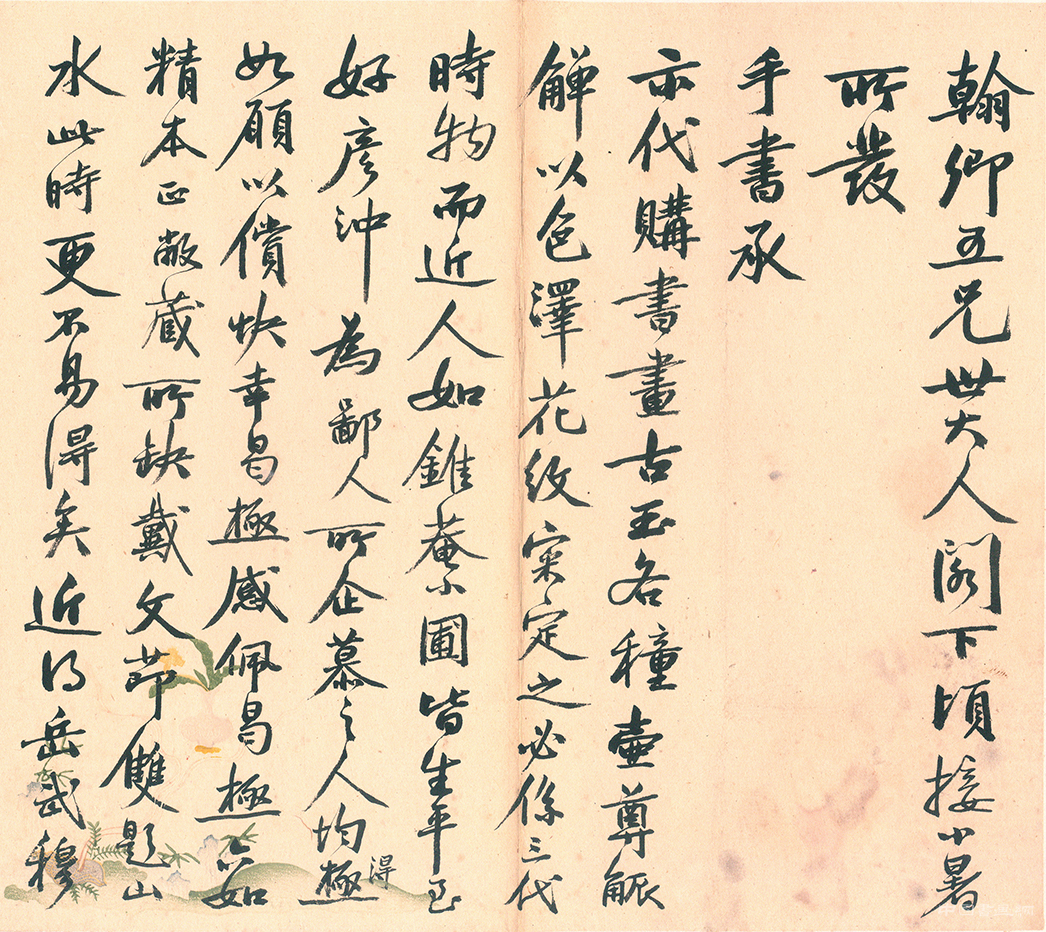 翰卿五兄世大人閣下頃接小暑
所發
手書承
示代購書畫古玉各種壷尊觚
觶以色澤花紋定之必係三代
時物而近人如錐菴小圃皆生平至
好彥沖為鄙人所企慕之人均極得
如願以償快幸曷極感佩曷極六如
精本正敝蔵所缺戴文節雙題山
水此時更不易得矣近得岳武穆